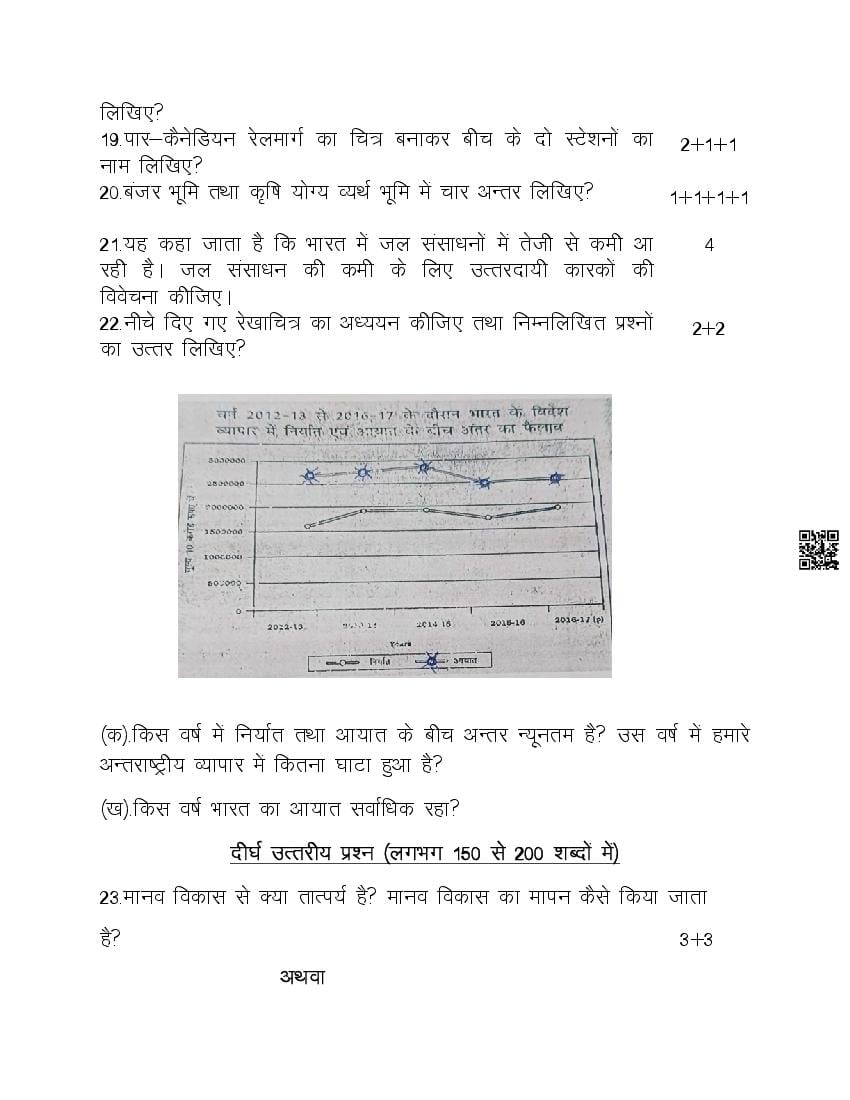 लिखिए?
19.पार–कैनेडियन रेलमार्ग का चित्र बनाकर बीच के दो स्टेशनों का 2+1+1
नाम लिखिए?
20.बंजर भूमि तथा कृषि योग्य व्यर्थ भूमि में चार अन्तर लिखिए? 1+1+1+1
21.यह कहा जाता है कि भारत में जल संसाधनों में तेजी से कमी आ 4
रही है। जल संसाधन की कमी के लिए उत्तरदायी कारकों की
विवेचना कीजिए।
22.नीचे दिए गए रेखाचित्र का अध्ययन कीजिए तथा निम्नलिखित प्रश्नों 2+2
का उत्तर लिखिए?
वर्ष 2012-13 से 2016-17 के दौरान भारत के विदेश
व्यापार में निर्यात एवं आयात के बीच अंतर का फैलाव
3000000
2500000
2000000
1500000
1000000
500000
0
2014-15 2015-16 2016-17 (p)
Years
निर्यात आयात
(क).किस वर्ष में निर्यात तथा आयात के बीच अन्तर न्यूनतम है? उस वर्ष में हमारे
अन्तराष्ट्रीय व्यापार में कितना घाटा हुआ है?
(ख).किस वर्ष भारत का आयात सर्वाधिक रहा?
दीर्घ उत्तरीय प्रश्न (लगभग 150 से 200 शब्दों में)
23.मानव विकास से क्या तात्पर्य है? मानव विकास का मापन कैसे किया जाता
है? 3+3
अथवा